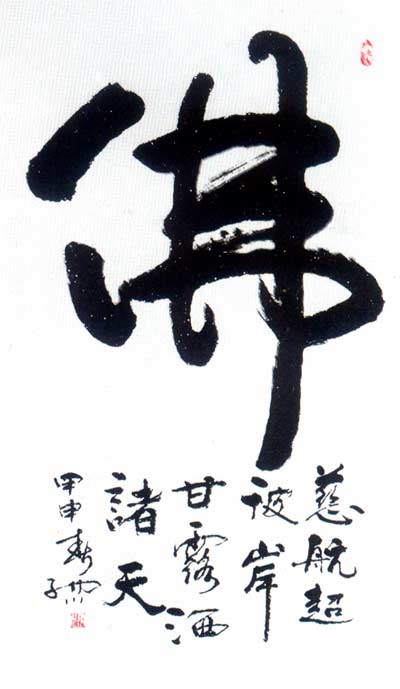 佛
慈航超
彼岸
甘露洒
諸天
甲申春
子